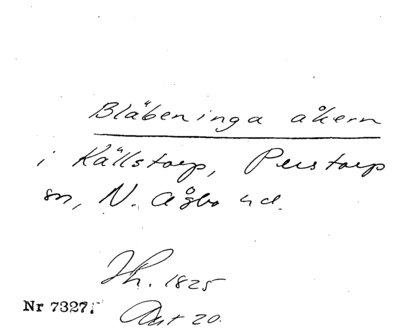 Bläbeninga åkern
i Källstorp, Perstorp
sn, N. Åsbo hd.
Ih. 1825
Nr 7327. Akt 20.